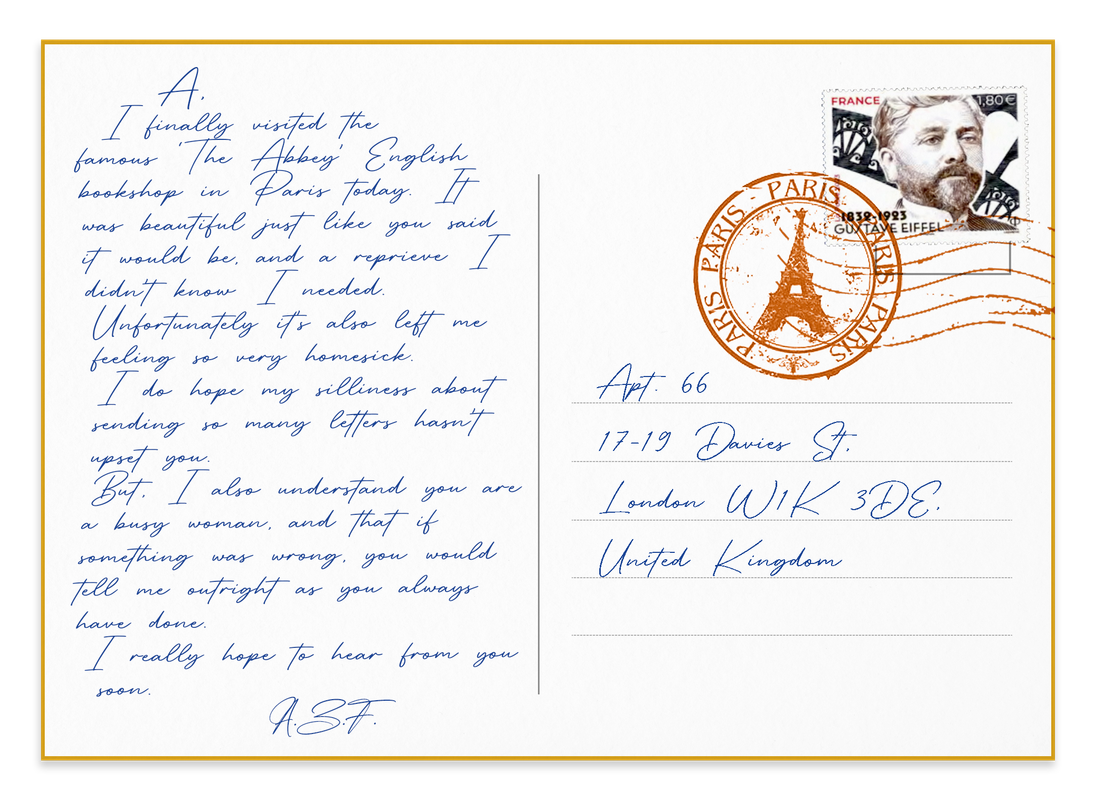 A,
I finally visited the
famous 'The Abbey' English
bookshop in Paris today. It
was beautiful just like you said
it would be, and a reprieve I
didn't know I needed.
Unfortunately it's also left me
feeling so very homesick.
I do hope my silliness about
sending so many letters hasn't
upset you.
But, I also understand you are
a busy woman, and that if
something was wrong, you would
tell me outright as you always
have done.
I really hope to hear from you
soon.
A.Z.F.
FRANCE
1,80€
1832-1923
GUSTAVE EIFFEL
PARIS PARIS PARIS PARIS PARIS
Apt. 66
17-19 Davies St,
London W1K 3DE,
United Kingdom